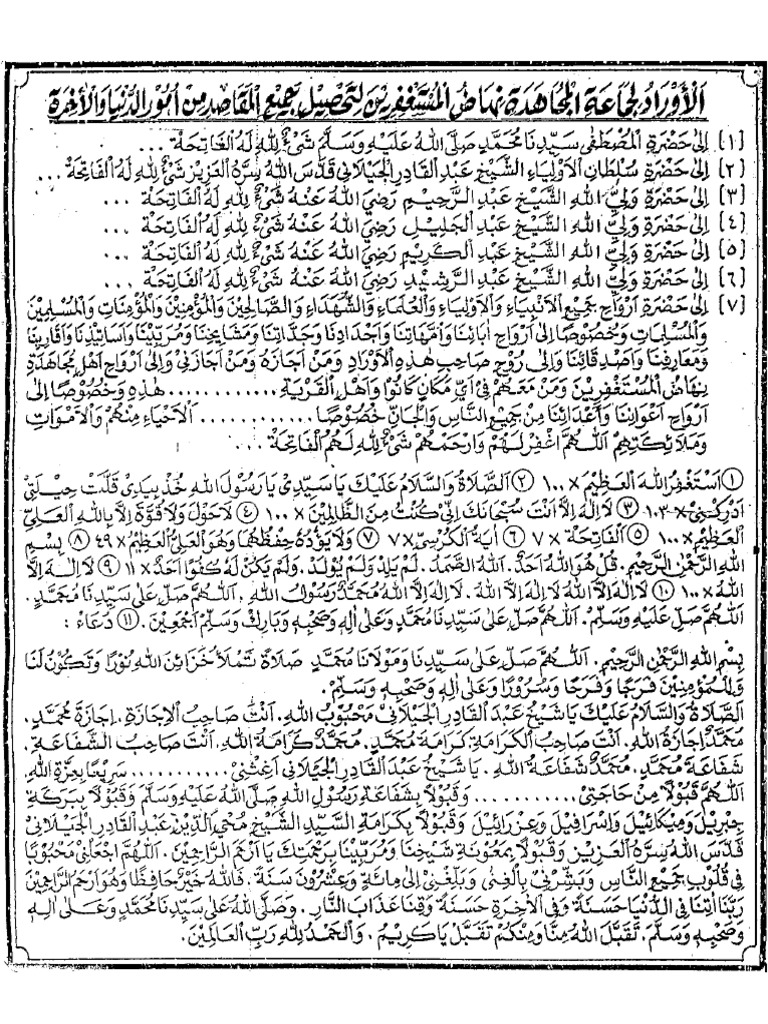 اَلْأَوْرَادُ لِجَمَاعَةِ الْمُجَاهَدَةِ نِهَاضُ الْمُسْتَغْفِرِيْنَ لِتَحْصِيْلِ جَمِيْعِ الْمَقَاصِدِ مِنْ اُمُوْرِ الدُّنْيَا وَالْأٰخِرَةِ
[١] اِلٰى حَضْرَةِ الْمُصْطَفٰى سَيِّدِنَا مُحَمَّدٍ صَلَّى اللهُ عَلَيْهِ وَسَلَّمَ شَيْءٌ لِلهِ لَهُ الْفَاتِحَةُ ...
[٢] اِلٰى حَضْرَةِ سُلْطَانِ الْأَوْلِيَاءِ الشَّيْخِ عَبْدِ الْقَادِرِ الْجَيْلَانِي قَدَّسَ اللهُ سِرَّهُ الْعَزِيْزَ شَيْءٌ لِلهِ لَهُ الْفَاتِحَةُ ...
[٣] اِلٰى حَضْرَةِ وَلِيِّ اللهِ الشَّيْخِ عَبْدِ الرَّحِيْمِ رَضِيَ اللهُ عَنْهُ شَيْءٌ لِلهِ لَهُ الْفَاتِحَةُ ...
[٤] اِلٰى حَضْرَةِ وَلِيِّ اللهِ الشَّيْخِ عَبْدِ الْجَلِيْلِ رَضِيَ اللهُ عَنْهُ شَيْءٌ لِلهِ لَهُ الْفَاتِحَةُ ...
[٥] اِلٰى حَضْرَةِ وَلِيِّ اللهِ الشَّيْخِ عَبْدِ الْكَرِيْمِ رَضِيَ اللهُ عَنْهُ شَيْءٌ لِلهِ لَهُ الْفَاتِحَةُ ...
[٦] اِلٰى حَضْرَةِ وَلِيِّ اللهِ الشَّيْخِ عَبْدِ الرَّشِيْدِ رَضِيَ اللهُ عَنْهُ شَيْءٌ لِلهِ لَهُ الْفَاتِحَةُ ...
[٧] اِلٰى حَضْرَةِ اَرْوَاحِ جَمِيْعِ الْأَنْبِيَاءِ وَالْأَوْلِيَاءِ وَالْعُلَمَاءِ وَالشُّهَدَاءِ وَالصَّالِحِيْنَ وَالْمُؤْمِنِيْنَ وَالْمُؤْمِنَاتِ وَالْمُسْلِمِيْنَ
وَالْمُسْلِمَاتِ وَخُصُوْصًا اِلٰى اَرْوَاحِ اٰبَائِنَا وَاُمَّهَاتِنَا وَاَجْدَادِنَا وَجَدَّاتِنَا وَمَشَايِخِنَا وَمُرَبِّيْنَا وَاَسَاتِيْذِنَا وَاَقَارِبِنَا
وَمَعَارِفِنَا وَاَصْدِقَائِنَا وَاِلٰى رُوْحِ صَاحِبِ هٰذِهِ الْأَوْرَادِ وَمَنْ اَجَازَهُ وَمَنْ اَجَازَنِيْ وَاِلٰى اَرْوَاحِ اَهْلِ مُجَاهَدَةِ
نِهَاضُ الْمُسْتَغْفِرِيْنَ وَمَنْ مَعَهُمْ فِيْ اَيِّ مَكَانٍ كَانُوْا وَاَهْلِ الْقَرْيَةِ ............ هٰذِهِ وَخُصُوْصًا اِلٰى
اَرْوَاحِ اَعْوَانِنَا وَاَعْدَائِنَا مِنْ جَمِيْعِ النَّاسِ وَالْجَانِّ خُصُوْصًا ............ اَلْأَحْيَاءِ مِنْهُمْ وَالْأَمْوَاتِ
وَمَلَائِكَتِهِمْ اَللّٰهُمَّ اغْفِرْ لَهُمْ وَارْحَمْهُمْ شَيْءٌ لِلهِ لَهُمُ الْفَاتِحَةُ ...
① اَسْتَغْفِرُ اللهَ الْعَظِيْمَ × ١٠٠ ② اَلصَّلَاةُ وَالسَّلَامُ عَلَيْكَ يَا سَيِّدِيْ يَا رَسُوْلَ اللهِ خُذْ بِيَدِيْ قَلَّتْ حِيْلَتِيْ
اَدْرِكْنِيْ × ١٠٣ ③ لَا اِلٰهَ اِلَّا اَنْتَ سُبْحَانَكَ اِنِّيْ كُنْتُ مِنَ الظَّالِمِيْنَ × ١٠٠ ④ لَا حَوْلَ وَلَا قُوَّةَ اِلَّا بِاللهِ الْعَلِيِّ
الْعَظِيْمِ × ١٠٠ ⑤ اَلْفَاتِحَةُ × ٧ ⑥ اٰيَةُ الْكُرْسِيِّ × ٧ ⑦ وَلَا يَؤُدُهُ حِفْظُهُمَا وَهُوَ الْعَلِيُّ الْعَظِيْمُ × ٤٩ ⑧ بِسْمِ
اللهِ الرَّحْمٰنِ الرَّحِيْمِ. قُلْ هُوَ اللهُ اَحَدٌ. اَللهُ الصَّمَدُ. لَمْ يَلِدْ وَلَمْ يُوْلَدْ. وَلَمْ يَكُنْ لَهُ كُفُوًا اَحَدٌ × ١١ ⑨ لَا اِلٰهَ اِلَّا
اللهُ × ١٠٠ ⑩ لَا اِلٰهَ اِلَّا اللهُ لَا اِلٰهَ اِلَّا اللهُ. لَا اِلٰهَ اِلَّا اللهُ مُحَمَّدٌ رَسُوْلُ اللهِ. اَللّٰهُمَّ صَلِّ عَلٰى سَيِّدِنَا مُحَمَّدٍ.
اَللّٰهُمَّ صَلِّ عَلَيْهِ وَسَلِّمْ. اَللّٰهُمَّ صَلِّ عَلٰى سَيِّدِنَا مُحَمَّدٍ وَعَلٰى اٰلِهِ وَصَحْبِهِ وَبَارِكْ وَسَلِّمْ اَجْمَعِيْنَ. ⑪ دُعَاءْ :
بِسْمِ اللهِ الرَّحْمٰنِ الرَّحِيْمِ. اَللّٰهُمَّ صَلِّ عَلٰى سَيِّدِنَا وَمَوْلَانَا مُحَمَّدٍ صَلَاةً تَمْلَأُ خَزَائِنَ اللهِ نُوْرًا وَتَكُوْنُ لَنَا
وَلِلْمُؤْمِنِيْنَ فَرَجًا وَفَرَحًا وَسُرُوْرًا وَعَلٰى اٰلِهِ وَصَحْبِهِ وَسَلِّمْ.
اَلصَّلَاةُ وَالسَّلَامُ عَلَيْكَ يَا شَيْخُ عَبْدَ الْقَادِرِ الْجَيْلَانِيْ مَحْبُوْبُ اللهِ. اَنْتَ صَاحِبُ الْإِجَازَةِ. اِجَازَةُ مُحَمَّدٍ.
مُحَمَّدٌ اِجَازَةُ اللهِ. اَنْتَ صَاحِبُ الْكَرَامَةِ. كَرَامَةُ مُحَمَّدٍ. مُحَمَّدٌ كَرَامَةُ اللهِ. اَنْتَ صَاحِبُ الشَّفَاعَةِ.
شَفَاعَةُ مُحَمَّدٍ. مُحَمَّدٌ شَفَاعَةُ اللهِ. يَا شَيْخُ عَبْدَ الْقَادِرِ الْجَيْلَانِيْ اَغِثْنِيْ ............ سَرِيْعًا بِعِزَّةِ اللهِ.
اَللّٰهُمَّ قَبُوْلًا مِنْ حَاجَتِيْ ............ وَقَبُوْلًا بِشَفَاعَةِ رَسُوْلِ اللهِ صَلَّى اللهُ عَلَيْهِ وَسَلَّمَ وَقَبُوْلًا بِبَرَكَةِ
جِبْرِيْلَ وَمِيْكَائِيْلَ وَاِسْرَافِيْلَ وَعِزْرَائِيْلَ وَقَبُوْلًا بِكَرَامَةِ السَّيِّدِ الشَّيْخِ مُحْيِ الدِّيْنِ عَبْدِ الْقَادِرِ الْجَيْلَانِيْ
قَدَّسَ اللهُ سِرَّهُ الْعَزِيْزَ وَقَبُوْلًا بِمَعُوْنَةِ شَيْخِنَا وَمُرَبِّيْنَا بِرَحْمَتِكَ يَا اَرْحَمَ الرَّاحِمِيْنَ. اَللّٰهُمَّ اجْعَلْنِيْ مَحْبُوْبًا
فِيْ قُلُوْبِ جَمِيْعِ النَّاسِ وَبَشِّرْنِيْ بِالْغِنٰى وَبَلِّغْنِيْ اِلٰى مِائَةٍ وَعِشْرُوْنَ سَنَةً. فَاللهُ خَيْرٌ حَافِظًا وَهُوَ اَرْحَمُ الرَّاحِمِيْنَ
رَبَّنَا اٰتِنَا فِي الدُّنْيَا حَسَنَةً وَفِي الْأٰخِرَةِ حَسَنَةً وَقِنَا عَذَابَ النَّارِ. وَصَلَّى اللهُ عَلٰى سَيِّدِنَا مُحَمَّدٍ وَعَلٰى اٰلِهِ
وَصَحْبِهِ وَسَلَّمَ. تَقَبَّلَ اللهُ مِنَّا وَمِنْكُمْ تَقَبَّلْ يَا كَرِيْمُ. وَالْحَمْدُ لِلهِ رَبِّ الْعَالَمِيْنَ.